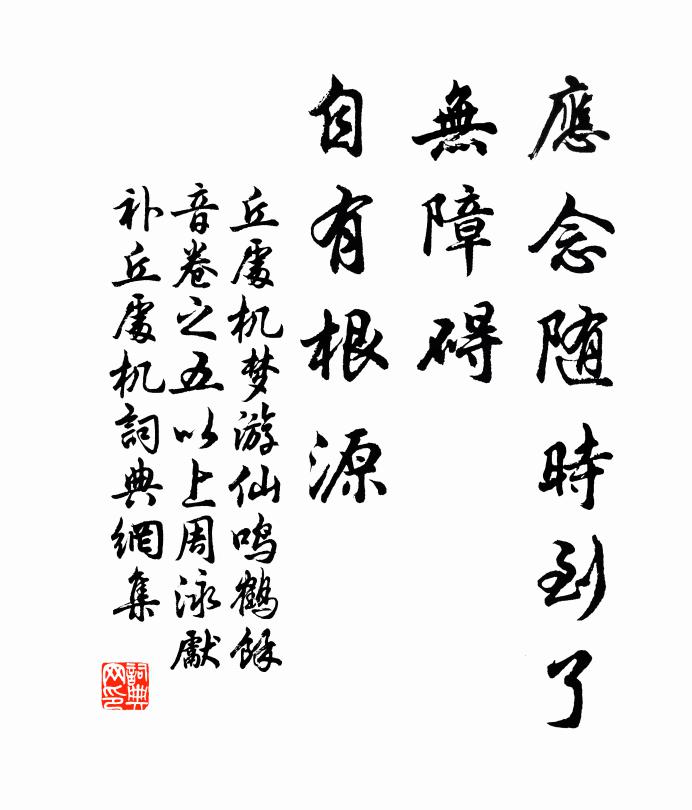 應念随時到了
無障碍
自有根源
丘處机梦游仙鸣鹤馀
音卷之五以上周泳獻
补丘處机詞典網集
詞典
网印